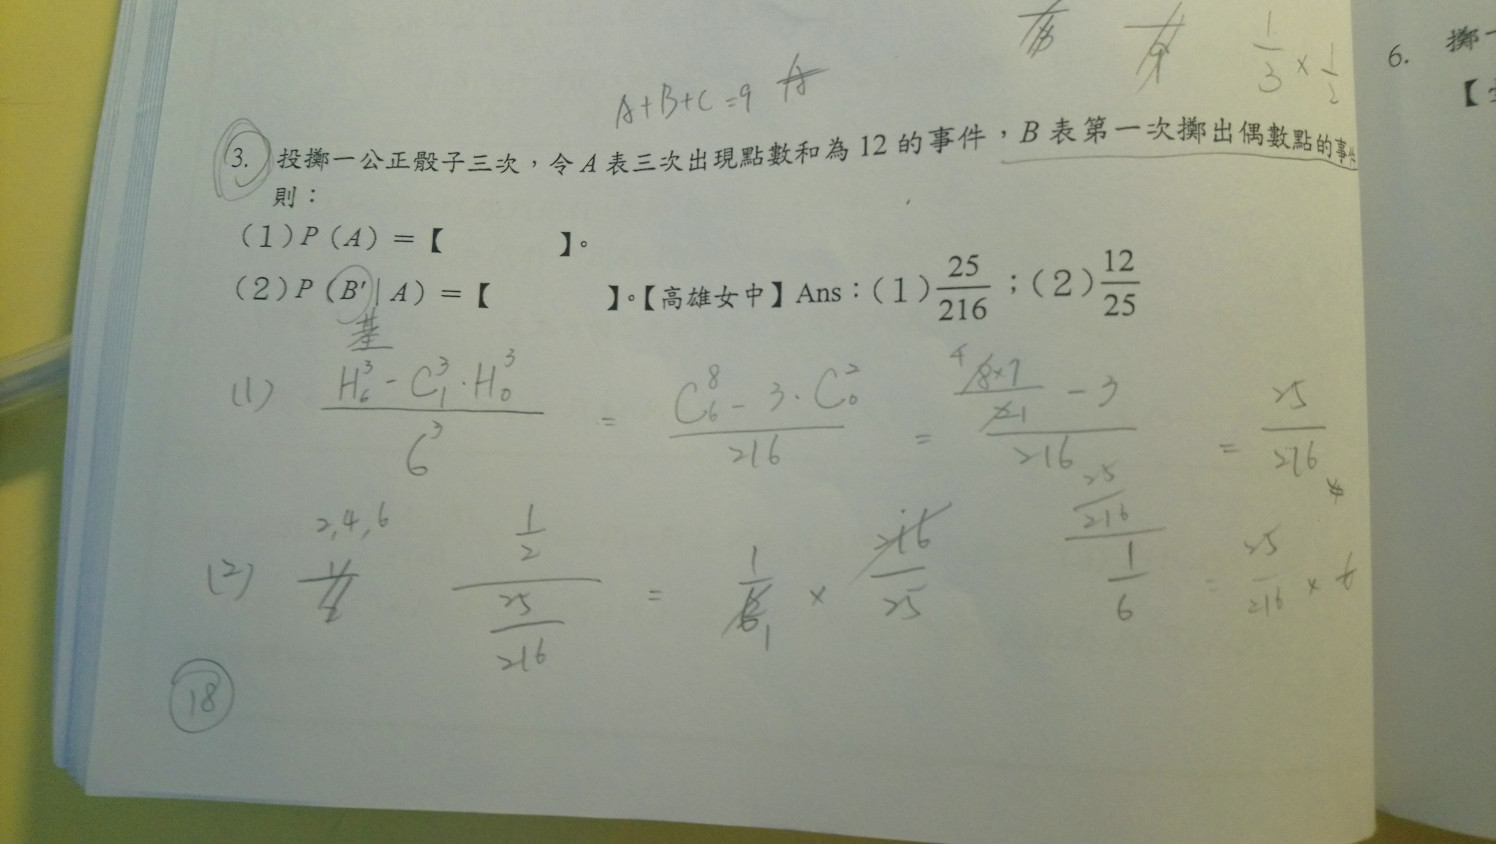 1/3 × 1/2
6. 擲一
A+B+C=9
3. 投擲一公正骰子三次，令 A 表三次出現點數和為 12 的事件，B 表第一次擲出偶數點的事件
則：
(1) P(A)＝【　　　】。
(2) P(B'|A)＝【　　　】。【高雄女中】Ans：(1) 25/216；(2) 12/25
(1) (H³₆ - C³₁·H³₀)/6³ = (C⁸₆ - 3·C²₀)/216 = (8×7/2×1 - 3)/216 = 25/216
(2) 2,4,6 (1/2)/(25/216) = 1/6 × 216/25 (25/216)/(1/6) = 25/216 × 6
18